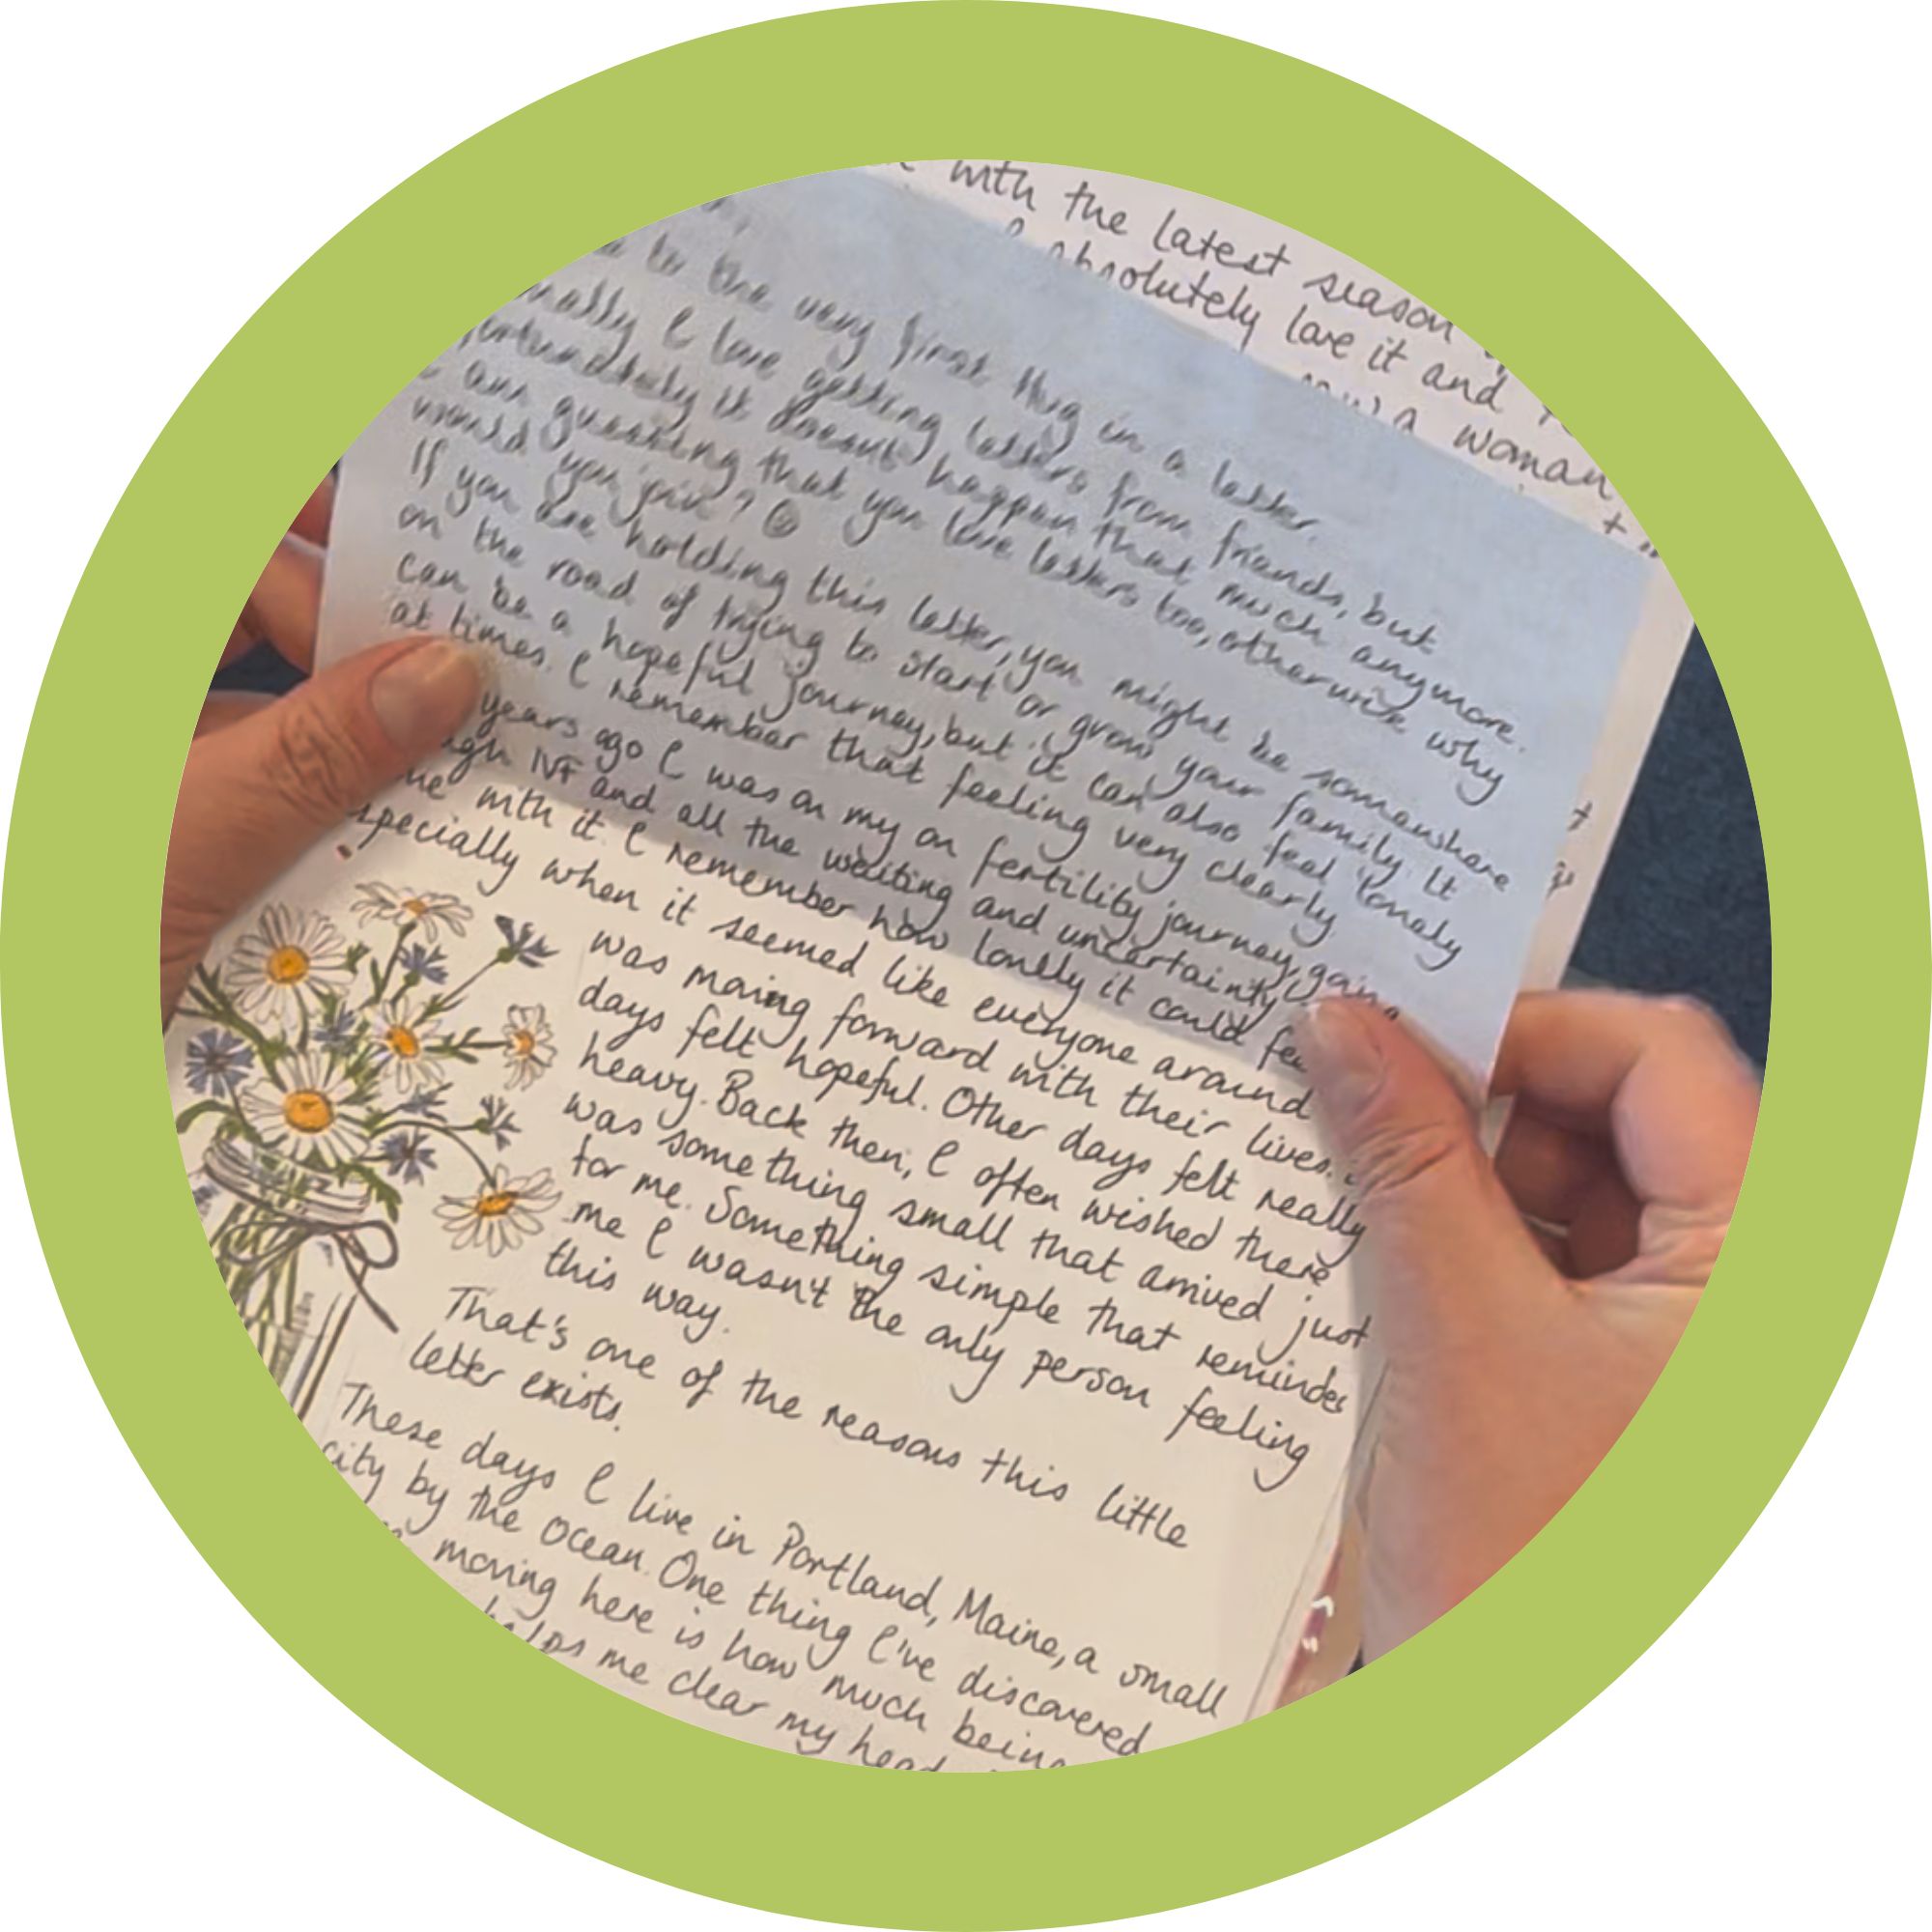 with the latest season
absolutely love it and
saw a woman
to the very first Hug in a letter.
I love getting letters from friends, but
it doesn't happen that much anymore.
I am guessing that you love letters too, otherwise why
would you join? ☺
If you are holding this letter, you might be somewhere
on the road of trying to start or grow your family. It
can be a hopeful journey, but it can also feel lonely
at times. I remember that feeling very clearly
years ago I was on my on fertility journey, going
IVF and all the waiting and uncertainty
with it. I remember how lonely it could
specially when it seemed like everyone around
was moving forward with their lives.
days felt hopeful. Other days felt really
heavy. Back then, I often wished there
was something small that arrived just
for me. Something simple that reminded
me I wasn't the only person feeling
this way.
That's one of the reasons this little
letter exists.
These days I live in Portland, Maine, a small
city by the ocean. One thing I've discovered
moving here is how much being
helps me clear my head